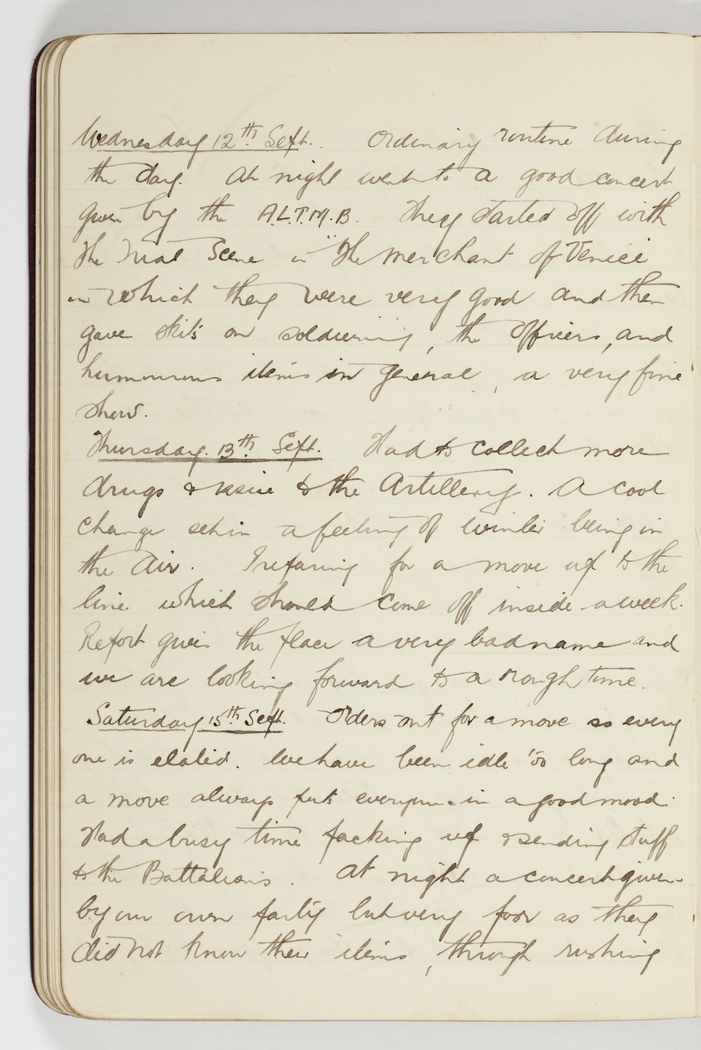 Wednesday 12th Sept. Ordinary routine during
the day. At night went to a good concert
given by the A.L.T.M.B. They started off with
the Trial Scene in "The Merchant of Venice
in which they were very good and then
gave skits on soldiering, the officers, and
humourous items in general, a very fine
show.
Thursday. 13th Sept. Had to collect more
drugs & issue to the Artillery. A cool
change set in a feeling of winter being in
the air. Preparing for a move up to the
line which should come off inside a week.
Report gives the place a very bad name and
we are looking forward to a rough time.
Saturday 15th Sept. Orders out for a move so every
one is elated. We have been idle too long and
a move always puts everyone in a good mood.
Had a busy time packing up & sending stuff
to the Battalions. At night a concert given
by our own party but very poor as they
did not know their items, through rushing